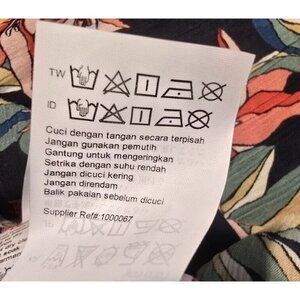 TW
ID
Cuci dengan tangan secara terpisah
Jangan gunakan pemutih
Gantung untuk mengeringkan
Setrika dengan suhu rendah
Jangan dicuci kering
Jangan direndam
Balik pakaian sebelum dicuci
Supplier Ref#:1000067